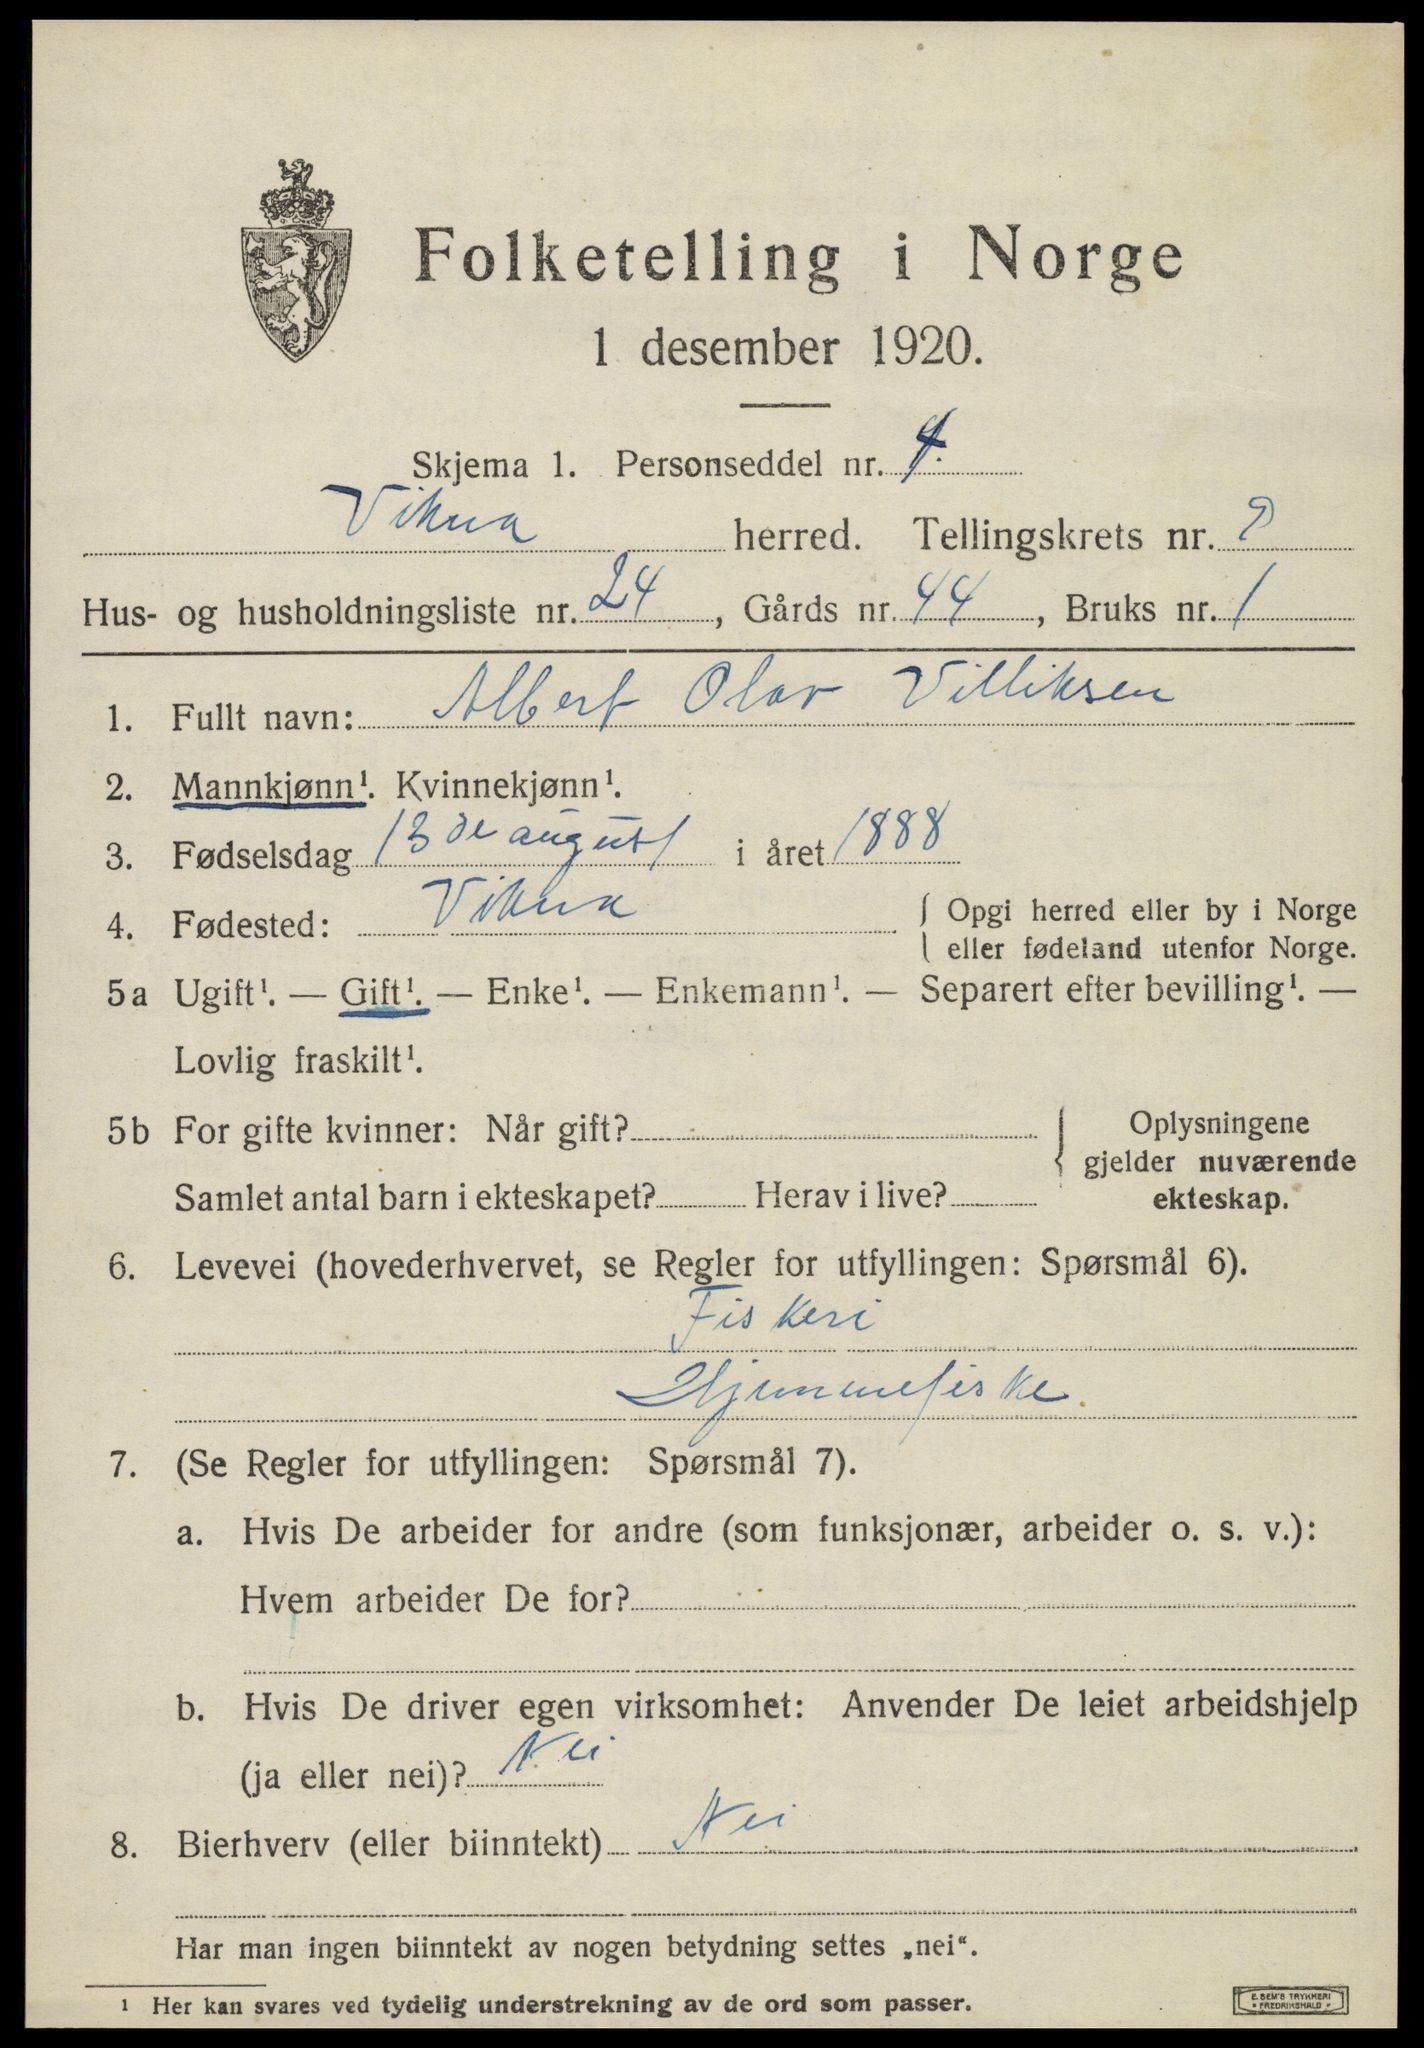 Folketelling i Norge
1 desember 1920.
Skjema 1. Personseddel nr.
Vikna herred. Tellingskrets nr.
Hus- og husholdningsliste nr. 24, Gårds nr. 44, Bruks nr. 1
1. Fullt navn: Albert Olav Villiksen
2. Mannkjønn¹. Kvinnekjønn¹.
3. Fødselsdag 13de august i året 1888
4. Fødested: Vikna { Opgi herred eller by i Norge
eller fødeland utenfor Norge.
5a Ugift¹. — Gift¹. — Enke¹. — Enkemann¹. — Separert efter bevilling¹. —
Lovlig fraskilt¹.
5b For gifte kvinner: Når gift?
Samlet antal barn i ekteskapet? Herav i live?
} Oplysningene
gjelder nuværende
ekteskap.
6. Levevei (hovederhvervet, se Regler for utfyllingen: Spørsmål 6).
Fiskeri
Hjemmefiske.
7. (Se Regler for utfyllingen: Spørsmål 7).
a. Hvis De arbeider for andre (som funksjonær, arbeider o. s. v.):
Hvem arbeider De for?
b. Hvis De driver egen virksomhet: Anvender De leiet arbeidshjelp
(ja eller nei)? Nei
8. Bierhverv (eller biinntekt) Nei
Har man ingen biinntekt av nogen betydning settes „nei“.
¹ Her kan svares ved tydelig understrekning av de ord som passer.
E. SEM'S TRYKKERI
FREDRIKSHALD